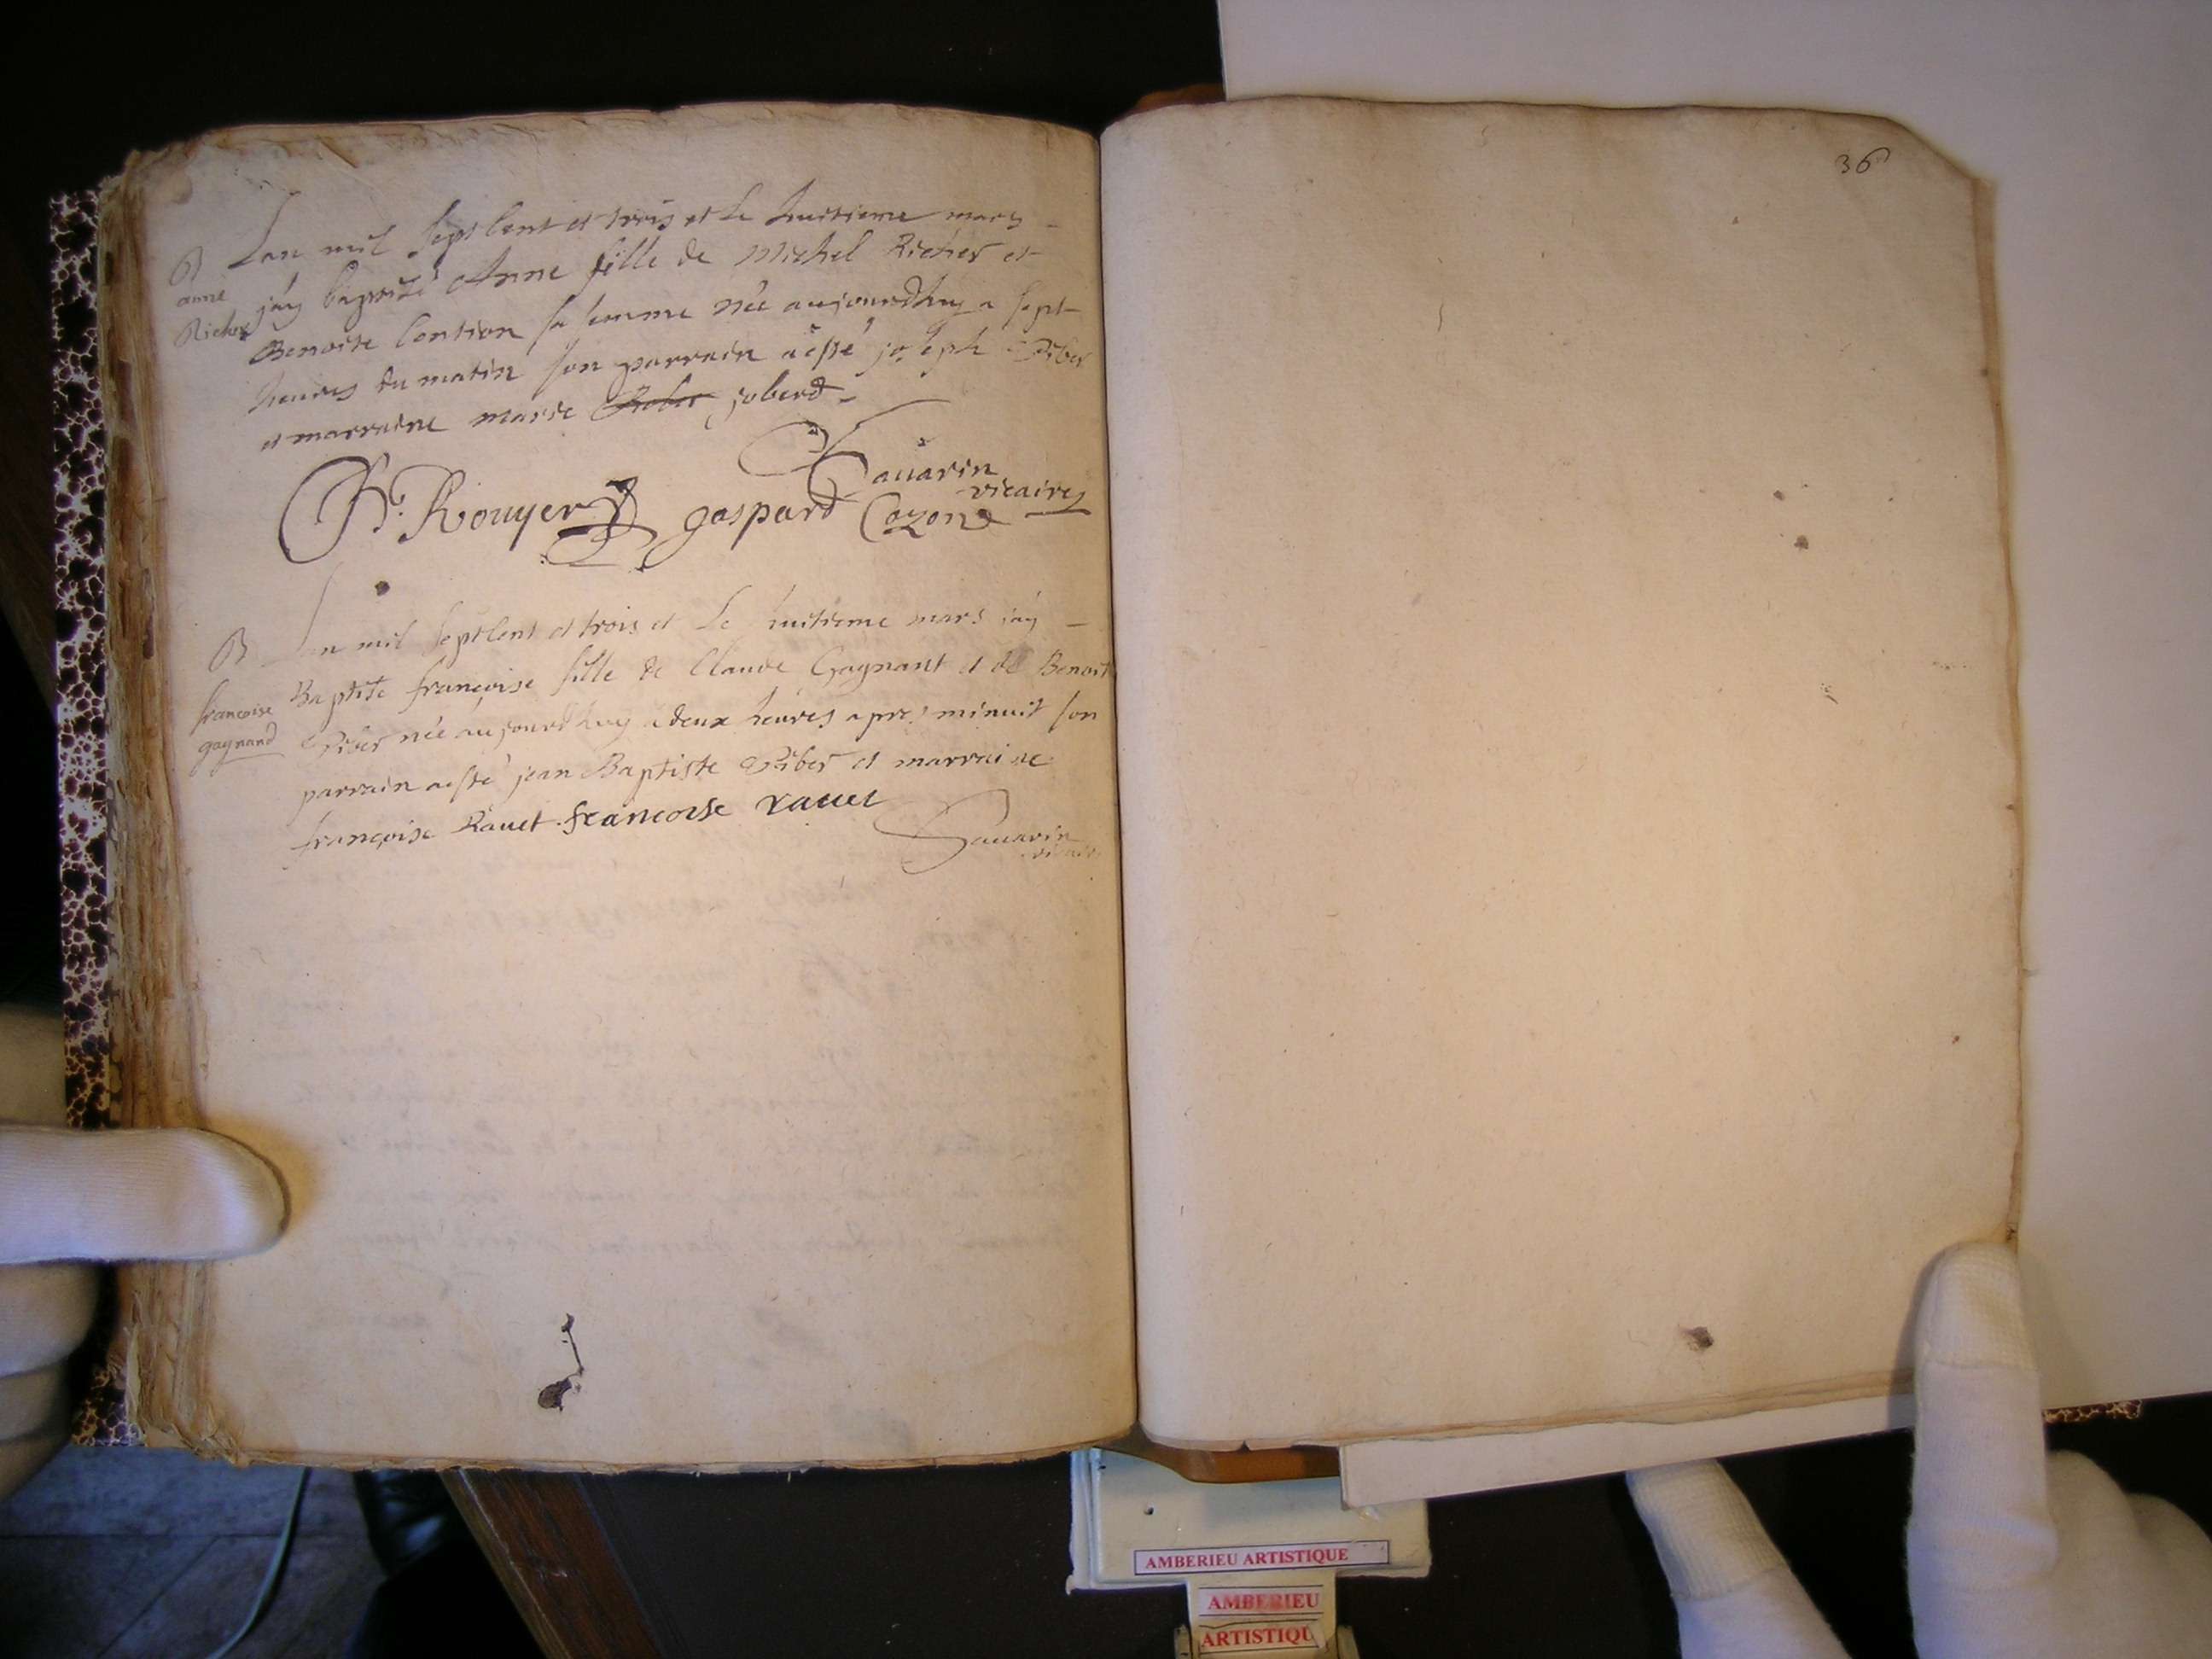 36
B
anne
Richer
Lan mil sept cent et trois et le huitieme mars
jay baptisé Anne fille de Michel Richer et
Benoite Contion sa femme née aujourdhuy a sept
heures du matin son parrain a esté joseph Piber
et marraine marie joberd
Sauarin
vicaire
B. Rouyer gaspard Cozon
B
francoise
gagnand
Lan mil sept cent et trois et Le huitieme mars jay
Baptisé françoise fille de Claude Gagnant et de Benoite
Piber née aujourdhuy a deux heures apres minuit son
parrain a esté jean Baptiste Piber et marraine
françoise Rauet francoise rauet
Sauarin
vicaire
AMBERIEU ARTISTIQUE
AMBERIEU
ARTISTIQU